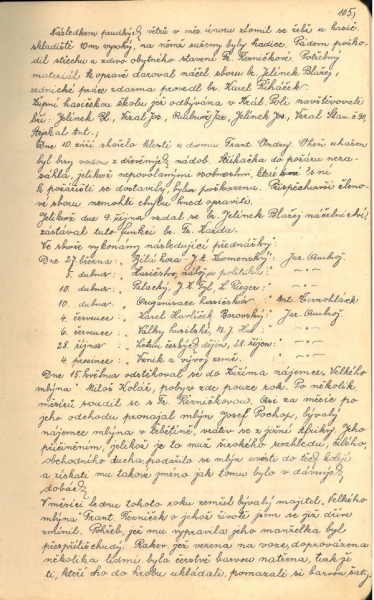 105,
Následkem prudkých větrů v měs. únoru zlomil se žebř u hasič.
skladiště 10 m vysoký, na němž sušeny byly hadice. Pádem poško-
dil střechu a zdivo obytného stavení Fr. Řezníčkové. Potřebný
materiál k opravě daroval náčel. sboru br. Jelínek Blažej,
zednické práce zdarma provedl br. Karel Řiháček.
Župní hasičskou školu jež odbývána v Král. Poli navštěvovali
bří: Jelínek Bl., Vrzal Jos., Jos., Jelínek Jos., Vrzal Stan. č. 30,
Hejskal Ant.;
Dne 10. září shořelo klestí u domu Frant. Ondry. Oheň uhašen
byl brzy vodou z dřevěných nádob. Stříkačka do požáru neza-
sáhla, jelikož nepovolanými osobnostmi, které s ní
k požářišti se dostavily, byla poškozena. Přispěchavší členo-
vé sboru nemohli chybu hned opraviti.
Jelikož dne 9. října vzdal se br. Jelínek Blažej náčelnictví,
zastával tuto funkci br. Fr. Kazda.
Ve sboře vykonány následující přednášky:
Dne 27 března: Bílá hora - J. A. Komenský: Jar.
5. dubna: Hasičstvo, politika: - " -
10. dubna: Palacký, J. K. Tyl, L. Rieger: - " -
10. dubna: Organisace hasičská: Ant.
4. července: Karel Havlíček Borovský: Jar.
6. července: Války husitské, M. J. Hus: - " -
28. října: českých dějin, 28. říjen: - " -
4. prosince: Vznik a vývoj země. - " -
Dne 15. května odstěhoval se do Kuřima nájemce „Velkého
mlýna“ Miloš Kolář, pobyv zde pouze rok. Po několik
měsíců soudil se s Fr. Řezníčkovou. Asi za měsíc po
jeho odchodu pronajal mlýn Josef Pochop, bývalý
nájemce mlýna v, vrátiv se z jižní Afriky. Jeho
přičiněním, jelikož je to muž širokého rozhledu, čilého,
obchodního ducha, podařilo se mlýn uvésti do též koleje
a získati mu takové jméno jak tomu bylo v dávných
dobách.
V měsíci lednu tohoto roku zemřel bývalý majitel „Velkého
mlýna“ Frant. Řezníček o jehož životě jsem se již dříve
zmínil. Pohřeb, jež mu vypravila jeho manželka byl
přespříliš chudý. Rakev, jež vezena na voze, doprovázena
několika lidmi, byla čerstvě barvou natřena, tak že
ti, kteří ho do hrobu ukládali, pomazali si barvou šaty.